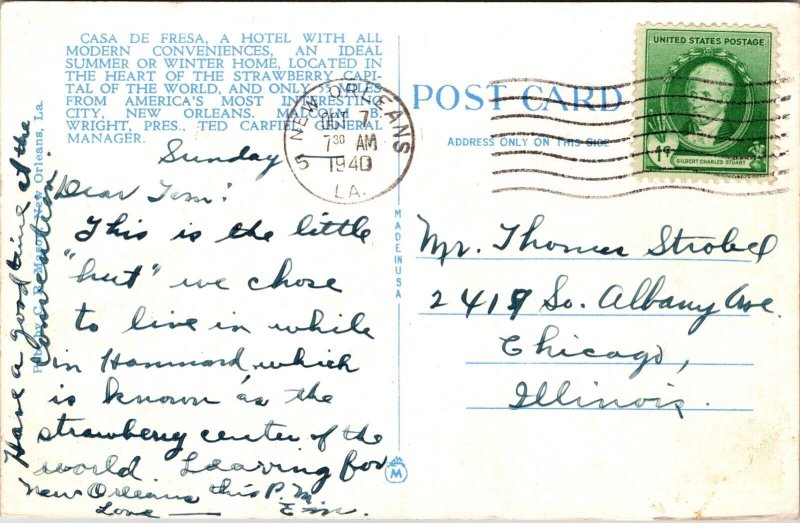 CASA DE FRESA, A HOTEL WITH ALL
MODERN CONVENIENCES, AN IDEAL
SUMMER OR WINTER HOME, LOCATED IN
THE HEART OF THE STRAWBERRY CAPI-
TAL OF THE WORLD, AND ONLY MILES
FROM AMERICA'S MOST INTERESTING
CITY, NEW ORLEANS,
WRIGHT, PRES., TED GENERAL
MANAGER.
Sunday
Dear Tom:
This is the little
"hut" we chose
to live in while
in Hammond, which
is known as the
strawberry center of the
world Leaving for
New Orleans this P.M.
Love — Em.
Have a good time at the
convention.
Pub. by New Orleans, La.
MADE IN USA
M
POST CARD
ADDRESS ONLY ON THIS SIDE
NEW ORLEANS
5
7
7 30 AM
1940
LA.
UNITED STATES POSTAGE
1¢
GILBERT CHARLES STUART
Mr. Thomas Strobel
2419 So. Albany Ave.
Chicago,
Illinois.